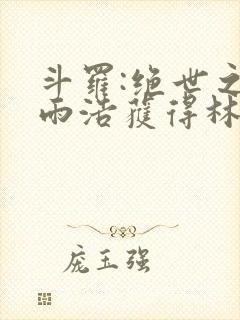 斗羅:绝世之
雨浩獲得林
庞玉强